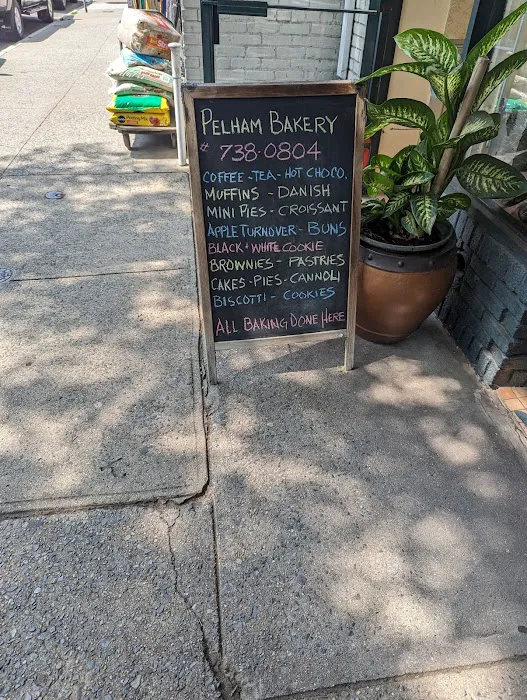 PELHAM BAKERY
# 738-0804
COFFEE - TEA - HOT CHOCO.
MUFFINS - DANISH
MINI PIES - CROISSANT
APPLE TURNOVER - BUNS
BLACK + WHITE COOKIE
BROWNIES - PASTRIES
CAKES - PIES - CANNOLI
BISCOTTI - COOKIES
ALL BAKING DONE HERE